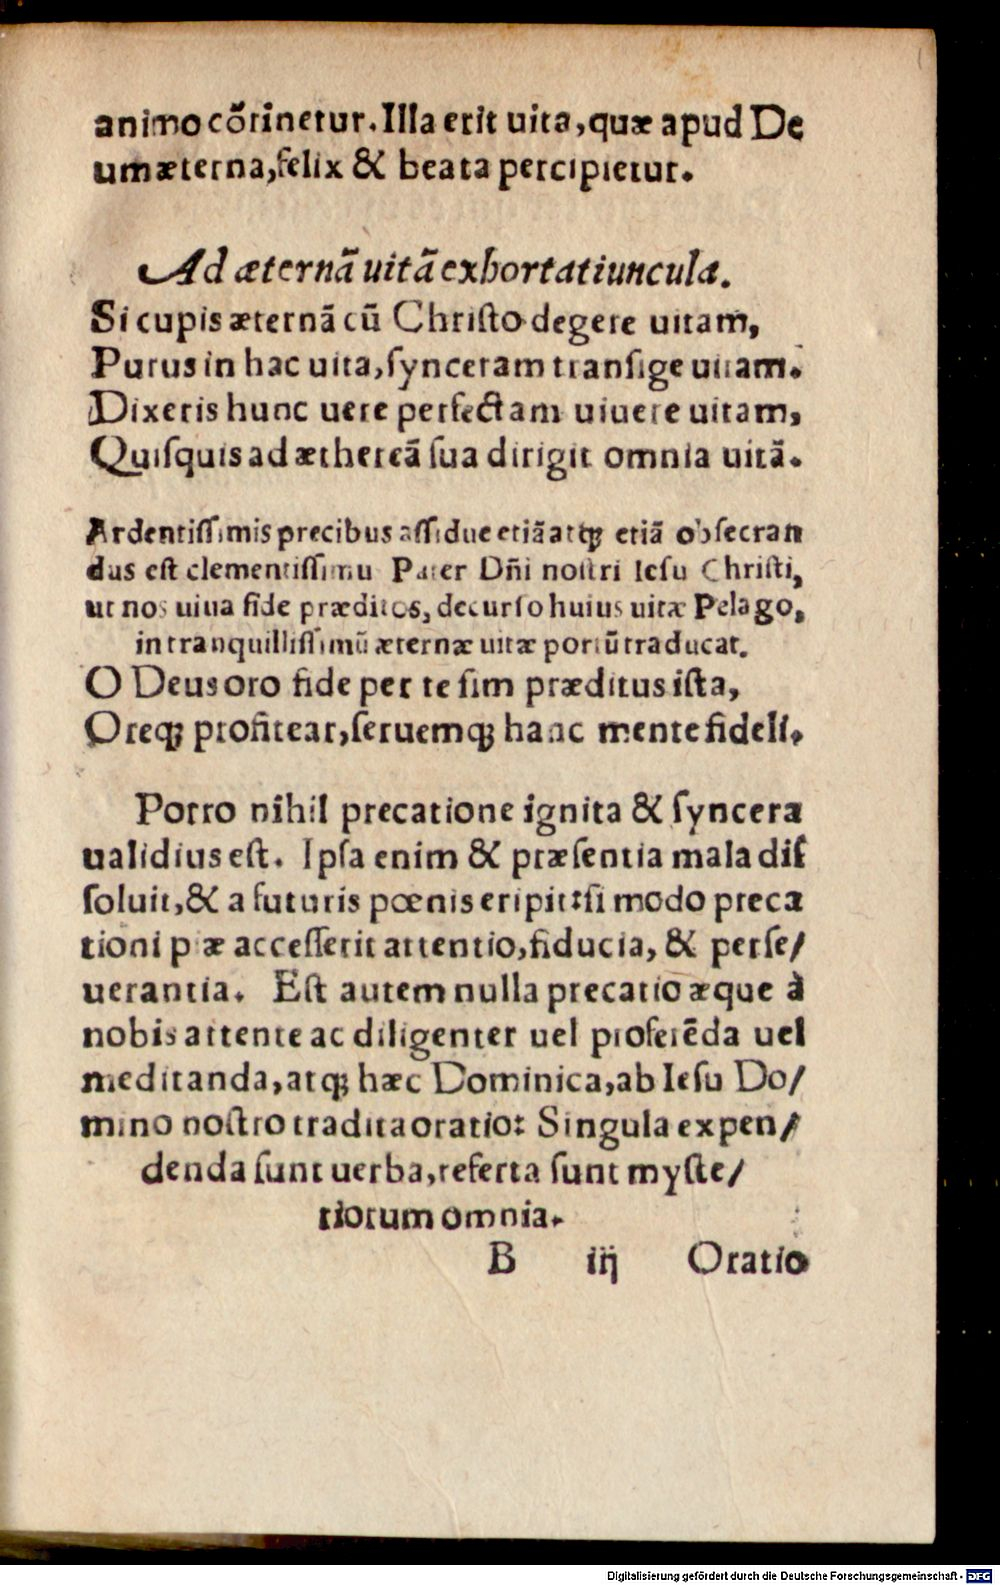 animo cõtinetur. Illa erit uita, quæ apud De
um æterna, felix & beata percipietur.
Ad æternã uitã exhortatiuncula.
Si cupis æternã cũ Christo degere uitam,
Purus in hac uita, synceram transige uitam.
Dixeris hunc uere perfectam uiuere uitam,
Quisquis ad æthereã sua dirigit omnia uitã.
Ardentissimis precibus assidue etiã atqꝫ etiã obsecran
dus est clementissimu Pater Dñi nostri Iesu Christi,
ut nos uiua fide præditos, decurso huius uitæ Pelago,
in tranquillissimũ æternæ uitæ portũ traducat.
O Deus oro fide per te sim præditus ista,
Oreqꝫ profitear, seruemqꝫ hanc mente fideli.
Porro nihil precatione ignita & syncera
ualidius est. Ipsa enim & præsentia mala dis
soluit, & a futuris pœnis eripit: si modo preca
tioni piæ accesserit attentio, fiducia, & perse/
uerantia. Est autem nulla precatio æque à
nobis attente ac diligenter uel proferẽda uel
meditanda, atqꝫ hæc Dominica, ab Iesu Do/
mino nostro tradita oratio: Singula expen/
denda sunt uerba, referta sunt myste/
riorum omnia.
B iij Oratio
Digitalisierung gefördert durch die Deutsche Forschungsgemeinschaft - DFG